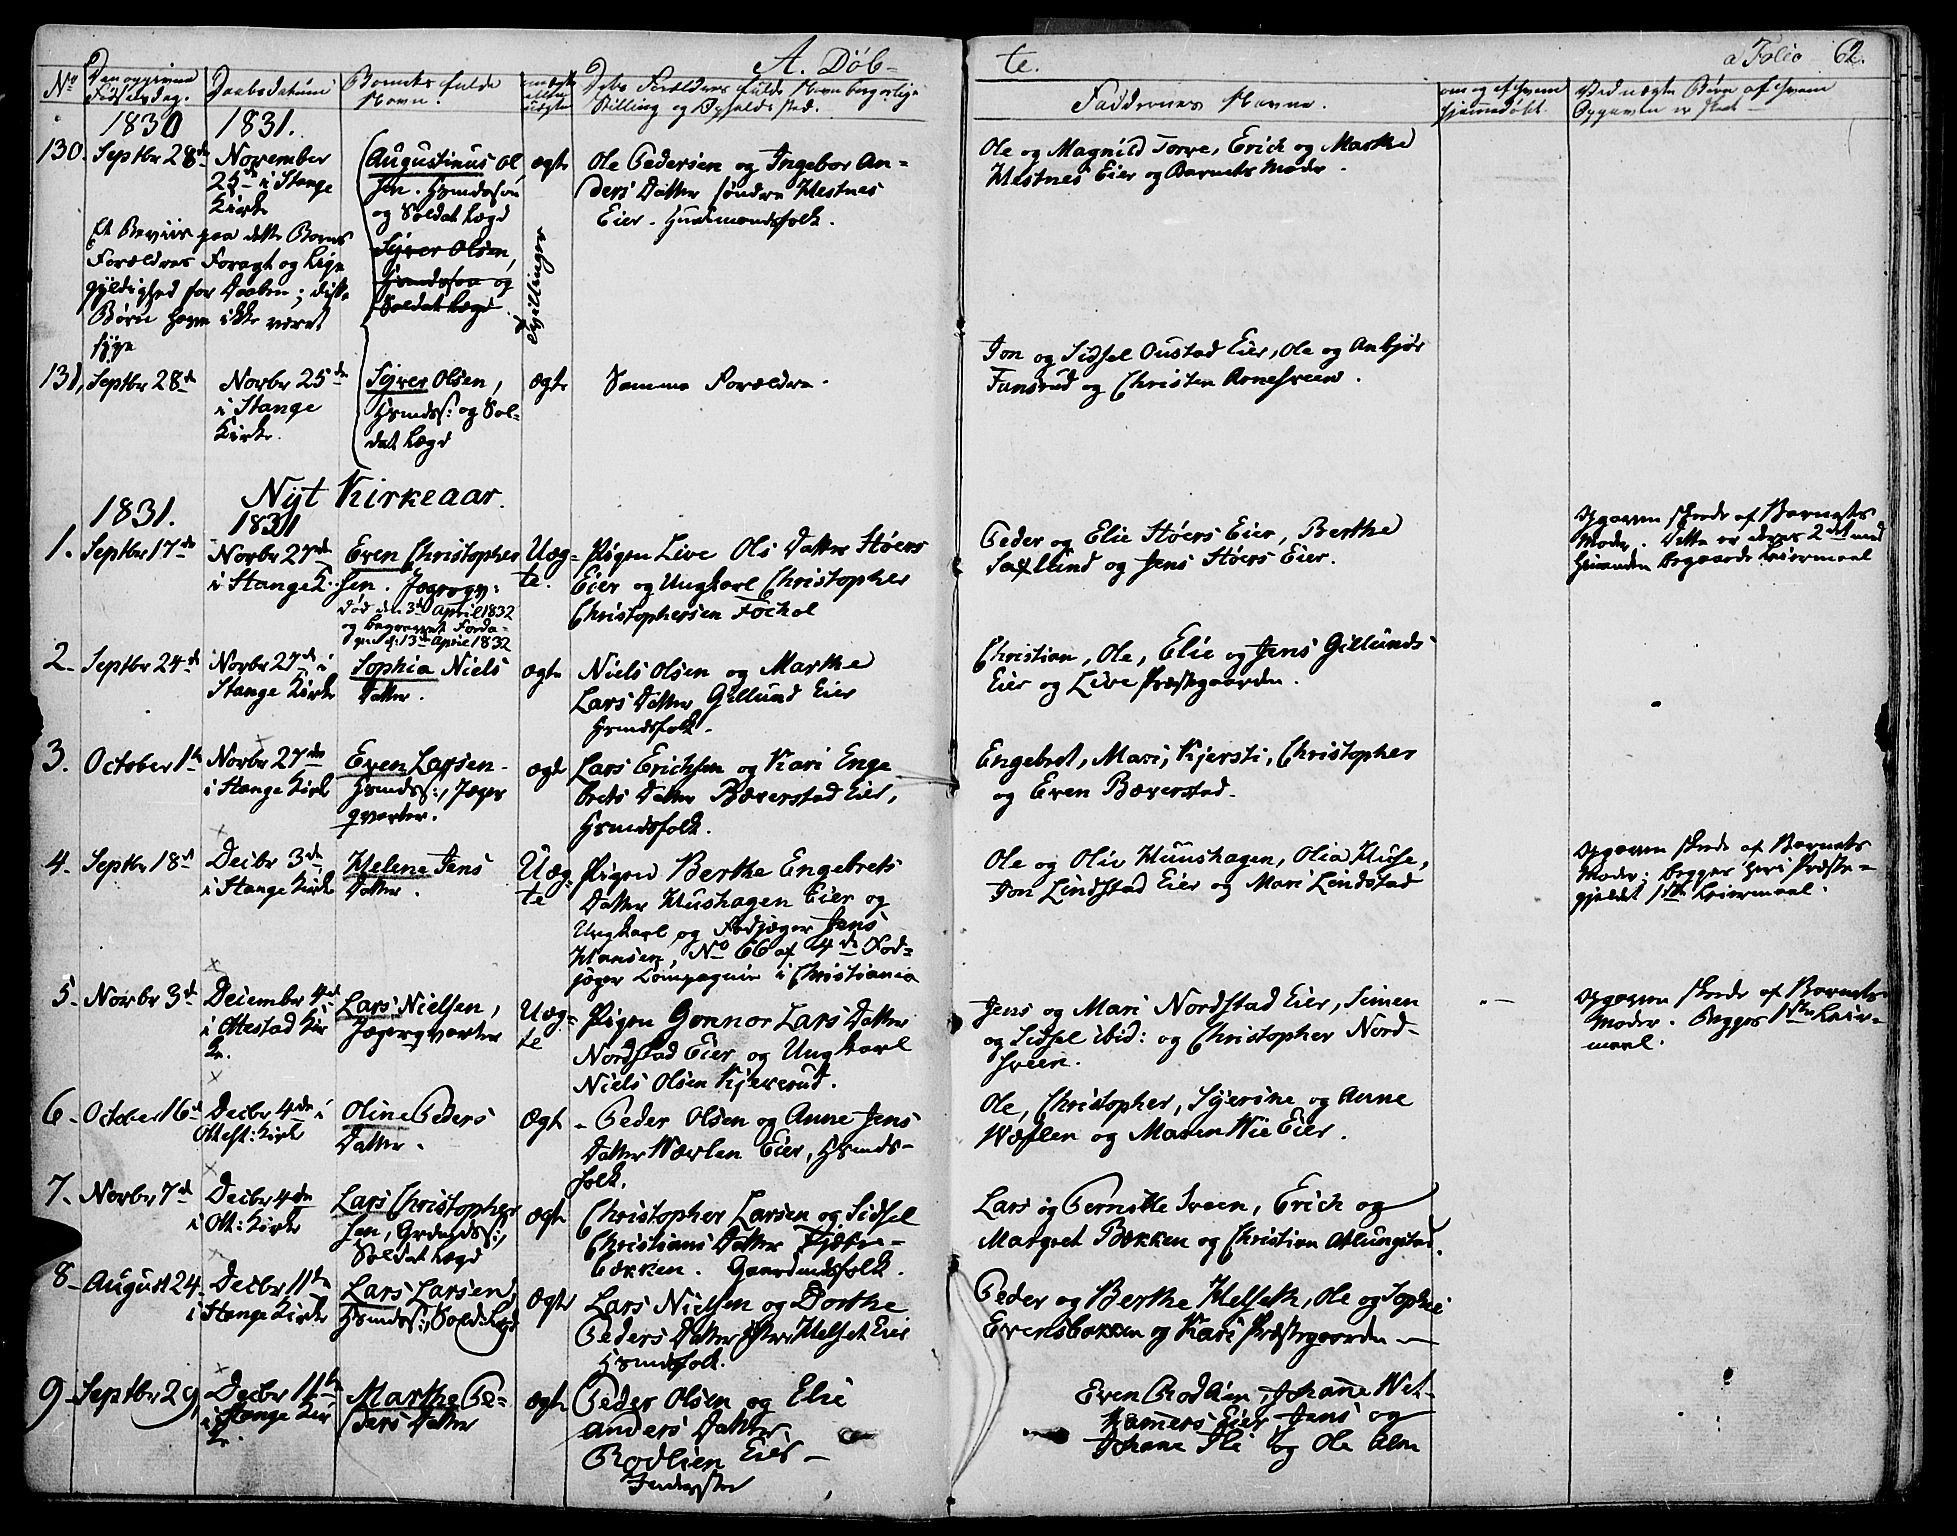 A. Døb-
te.
a Folio 62.
No
Den opgivne
Fødselsdag.
Daabsdatum
Barnets fulde
Navn.
ægte
eller
uægte
Stilling og Opholdssted.
Faddernes Navne.
om og af hvem
hjemmedøbt.
Ved uægte Børn af hvem
Opgaven er skeet
1830
1831.
130.
Septbr 28de
November
25de i Stange
Kirke
Augustinus Ol
sen. Hsmdssøn
og Soldat Lægd
ægte
Ole Pedersen og Ingebor An-
ders Datter søndre Westnes
Eier. Huusmandsfolk.
Ole og Magnild Torve, Erich og Marthe
Westnes Eier og Barnets Moder.
Et Beviis paa dette Barns
Forældres Foragt og Lige
gyldighed for Daaben; disse
Børn have ikke været
syge
Syver Olsen,
Hsmdssøn og
Soldat Lægd.
Tvillinger
131,
Septbr 28de
Novbr 25de
i Stange
Kirke.
Syver Olsen,
Hsmdss: og Sol-
dat Lægd
ægte
Samme Forældre.
Jon og Sidsel Oustad Eier, Ole og Anbjør
Funsrud og Christen Arnesveen.
Nyt Kirkeaar.
1831.
1831
1.
Septbr 17de
Novbr 27de
i Stange K.
Even Christopher
sen. Jægergv:
død den 3de April 1832
og begravet Forda-
gen d: 13de April 1832
Uæg-
te.
Pigen Live Ols Datter Støers
Eier og Ungkarl Christopher
Christophersen Fockol
Peder og Elie Støers Eier, Berthe
Saxlund og Jens Støers Eier.
Opgaven skede af Barnets
Moder. Dette er deres 2det med
hinanden begaaede Leiermaal
2-
Septbr 24de
Novbr 27de i
Stange Kirke
Sophia Niels
Datter.
ægte
Niels Olsen og Marthe
Lars Datter Gillund Eier
Hsmdsfolk.
Christian, Ole, Elie og Jens Gillunds
Eier og Live Præstgaarden.
3.
October 1ste
Novbr 27de
i Stange Kirk
Even Larsen-
Hsmdss:, Jæger
gverter.
ægte
Lars Erichsen og Kari Enge
brets Datter Bæverstad Eier,
Hsmdsfolk.
Engebret, Mari, Kjersti, Christopher
og Even Bæverstad.
4-
Septbr 18de
Decbr 3de
i Stange Kirke
Helene Jens
Datter.
Uæg-
te
Pigen Berthe Engebrets
Datter Huushagen Eier og
Ungkarl og Fodjæger Jens
Hansen, No 66 af 4de Fod-
jæger Compagnie i Christiania
Ole og Olia Huushagen, Olia Huse,
Jon Lindstad Eier og Mari Lindstad
Opgaven skede af Barnets
Moder; begges heri Præste-
gjeldet 1ste Leiermaal.
5-
Novbr 3de
December 4de
i Ottestad Kir
ke.
Lars Nielsen,
Jægergverter
Uæg-
te
Pigen Gonnor Lars Datter
Nordstad Eier og Ungkarl
Niels Olsen Kjeverud.
Jens og Mari Nordstad Eier, Simen
og Sidsel ibid: og Christopher Nord-
sveen.
Opgaven skede af Barnets
Moder. Begges 1ste Leier-
maal.
6-
October 16de
Decbr 4de i
Ottest: Kirk
Oline Peders
Datter.
Ægte
Peder Olsen og Anne Jens
Datter Wævlen Eier, Hsmds-
folk.
Ole, Christopher, Syverine og Anne
Wæflen og Maren Wie Eier.
7-
Novbr 7de
Decbr 4de
i Ott: Kirke
Lars Christopher
sen, Grdmdss:,
Soldat Lægd
ægte
Christopher Larsen og Sidsel
Christians Datter
bækken. Gaardmdsfolk.
Lars og Pernille Sveen, Erich og
Margret Bækken og Christian Atlungstad.
8-
August 24.
Decbr 11te
i Stange Kirke
Lars Larsen,
Hsmdss:, Sold: Lægd
Ægte
Lars Nielsen og Dorthe
Peders Datter Helset Eier
Hsmdsfolk.
Peder og Berthe Helseth, Ole og Sophie
Evensbakken og Kari Præstegaarden —
9-
Septbr 29,
Decbr 11te
i Stange Kir
ke.
Marthe Pe-
ders Datter
ægte
Peder Olsen og Elie
Anders Datter
Rodlien Eier —
Inderster
Even Rodlien, Johane Wel-
hamers Eier, Jens og
Johane Ile og Ole Alm